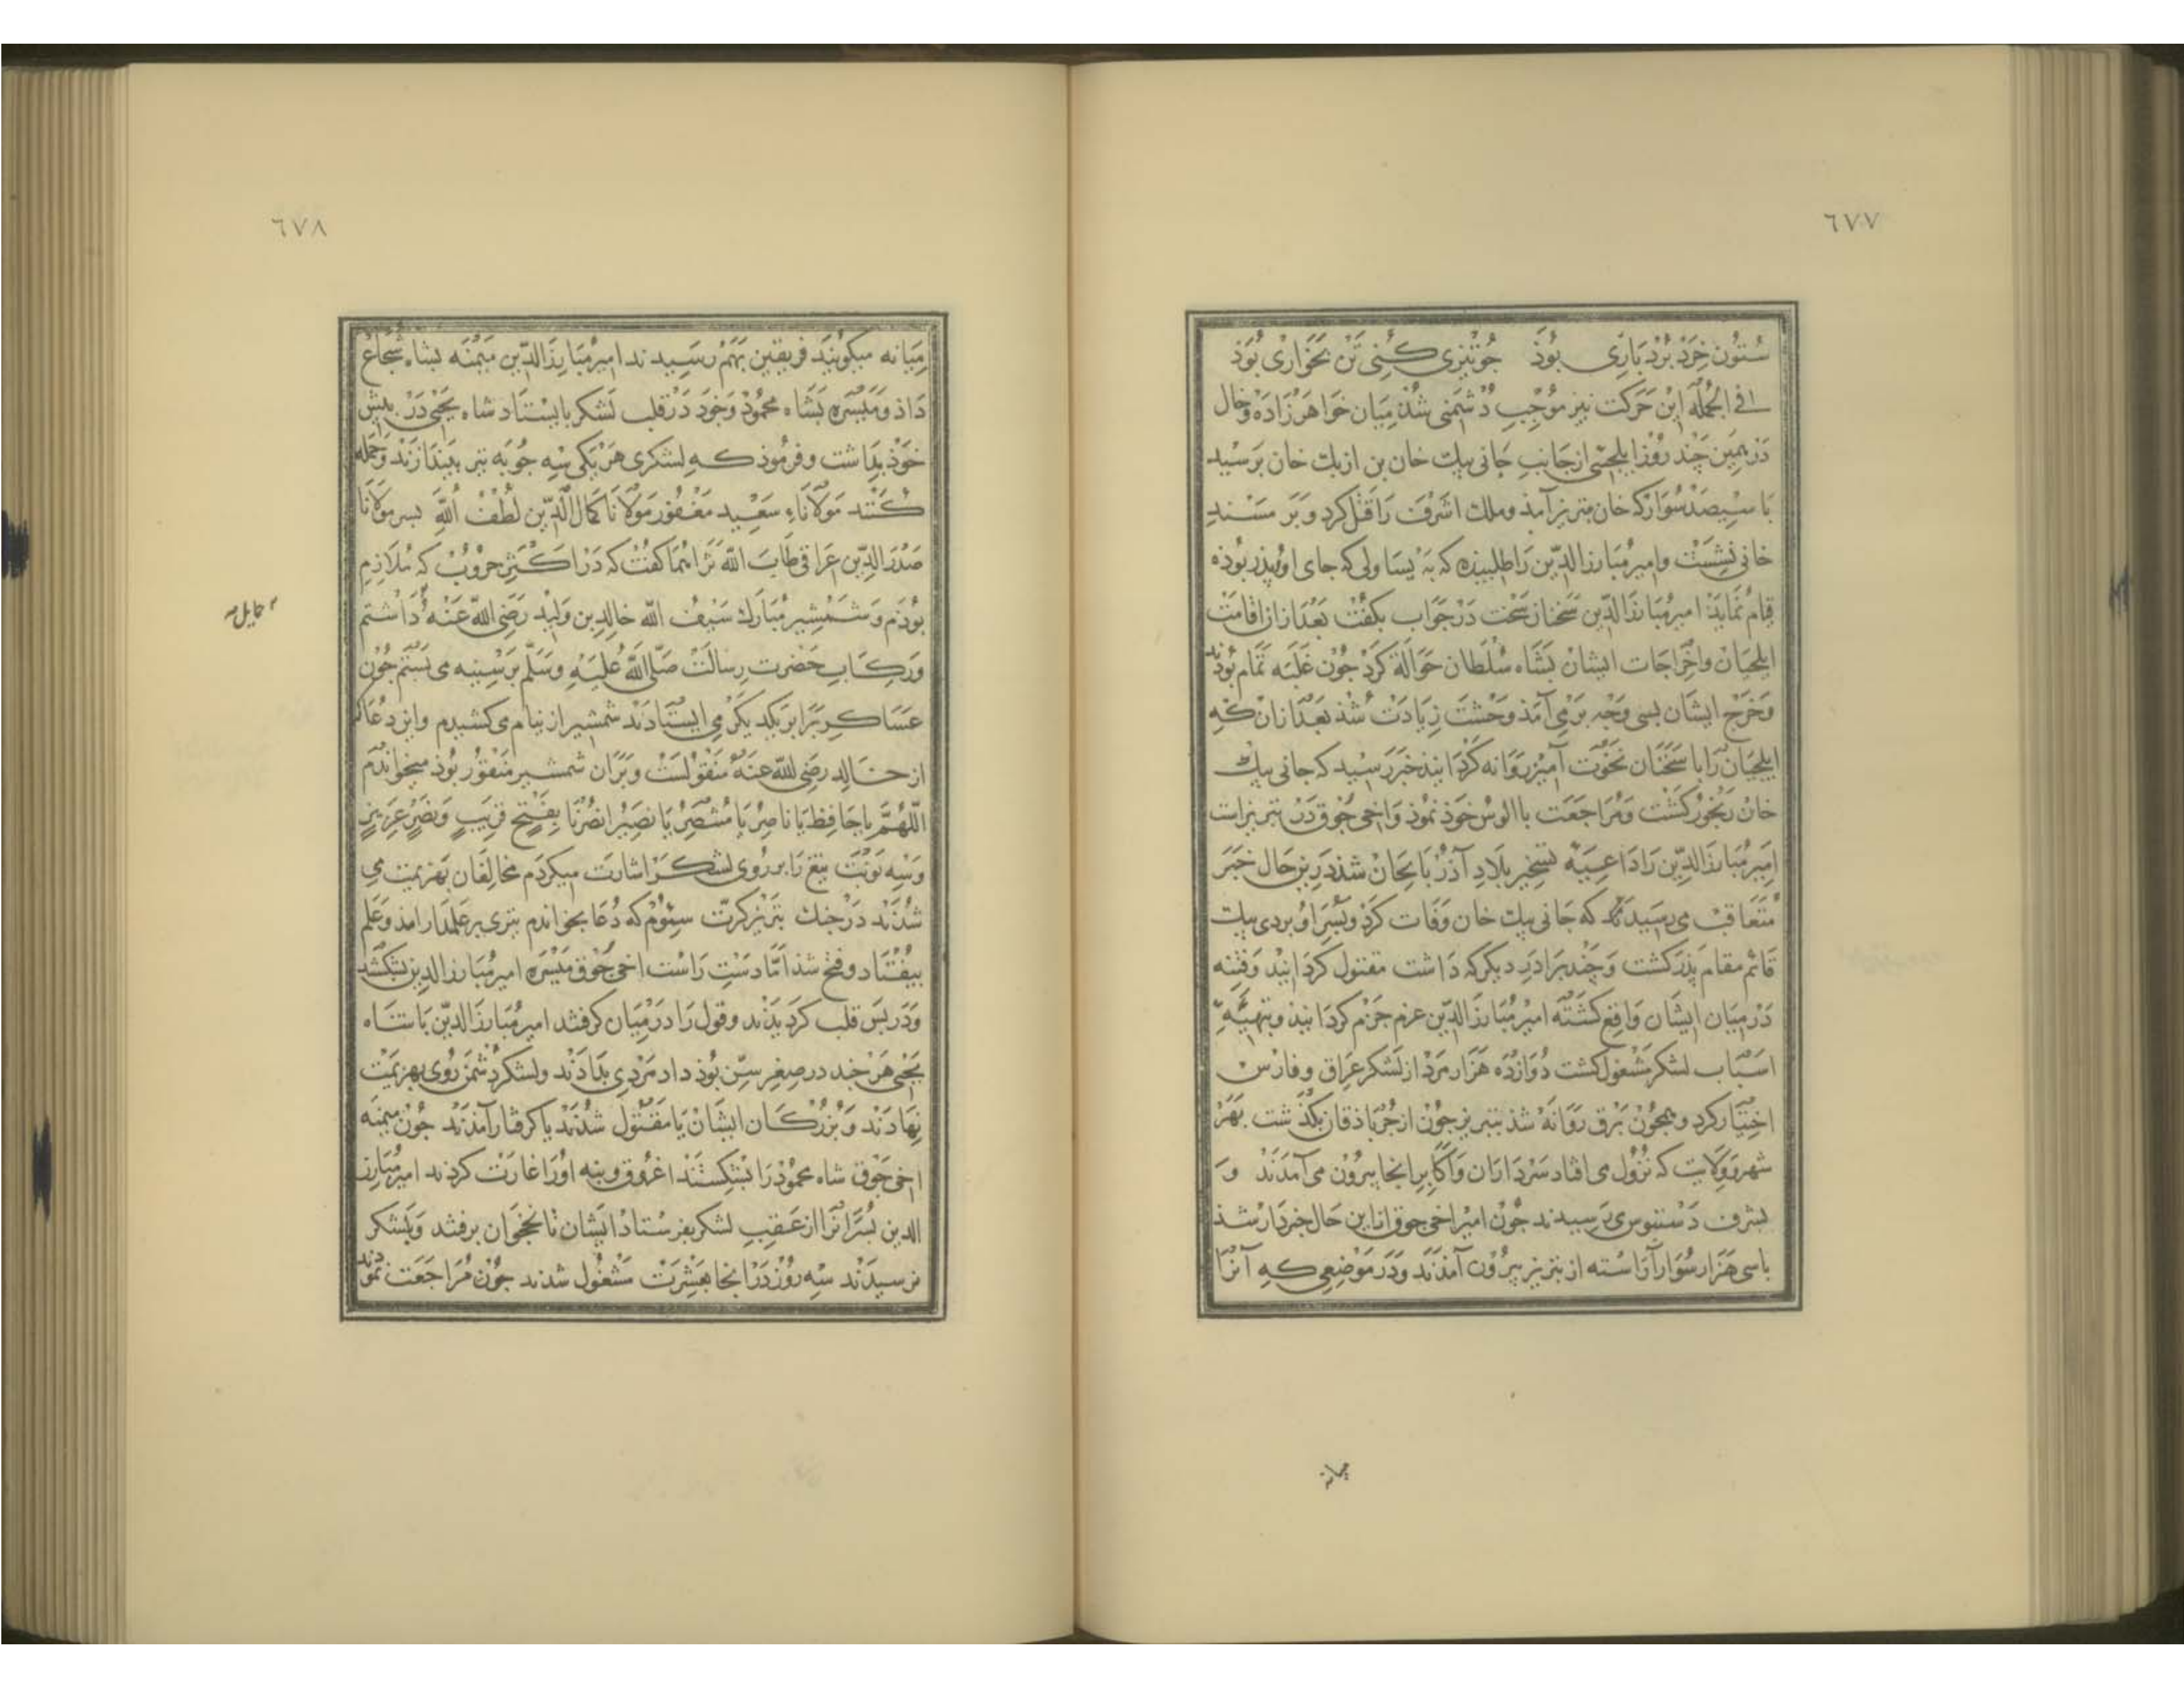 ٦٧٧
ستون خرد بردباری بوذ جو تیزی کنی تن بخواری بوذ
فی الجمله این حرکت نیز موجب دشمنی شذ میان خواهرزاده و خال
در همین چند روز ایلجئی از جانب جانی بیک خان بن ازبک خان برسید
با سیصد سوار که خان بتبریز آمذ و ملک اشرف را قتل کرد و بر مسند
خانی نشست و امیر مبارز الدین را طلبیذه که به یساولی که جای او و پذر بوذه
قیام نماید امیر مبارز الدین سخنان سخت در جواب بکفت بعد از ان اقامت
ایلجیان و اخراجات ایشان بشاه سلطان حوالة کرد جون غلبه تمام بودند
و خرج ایشان بسی وجه بر می آمذ وحشت زیادت شذ بعد از ان که
ایلجیان را با سخنان نخوت آمیز روانه کردانیذ خبر رسید که جانی بیک
خان رنجور کشت و مراجعت با الوس خوذ نموذ و اخی جوق در تبریز است
امیر مبارز الدین را داعیه تسخیر بلاد آذربایجان شذ درین حال خبر
متعاقب می رسیدند که جانی بیک خان وفات کرد و پسر او بردی بیک
قائم مقام پذر کشت و جند برادر دیکر که داشت مقتول کردانید و فتنه
در میان ایشان واقع کشته امیر مبارز الدین عزم جزم کردانیذ و بتهیه
اسباب لشکر مشغول کشت دوازده هزار مرد از لشکر عراق و فارس
اختیار کرد و همجون برق روانه شذ بتبریز جون از جرباذقان بکذشت بهر
شهر و ولایت که نزول می افتاد سرداران و اکابر انجا بیرون می آمدند و
بشرف دستبوسی می رسیدند جون امیر اخی جوق از این حال خبردار شذ
با سی هزار سوار آراسته از تبریز بیرون آمذند و در موضعی که آنرا
میانه
٦٧٨
میانه میکویند فریقین بهم رسیدند امیر مبارز الدین میمنه بشاه شجاع
داذ و میسره بشاه محمود و خود در قلب لشکر بایستاد شاه یحیی در پیش
خوذ بداشت و فرموذ که لشکری هر یکی سه جوبه تیر بیندازند و حمله
کنند مولاناء سعید مغفور مولانا کمال الدین لطف الله پسر مولانا
صدر الدین عراقی طاب الله ثراهما کفت که در اکثر حروب که ملازم
بوذم و شمشیر مبارک سیف الله خالد بن ولید رضی الله عنه داشتم
حمایل
و رکاب حضرت رسالت صلی الله علیه وسلم بر سینه می بستم جون
عساکر برابر یکدیکر می ایستادند شمشیر از نیام می کشیدم و این دعا که
از خالد رضی الله عنه منقولست و بر ان شمشیر منقور بوذ میخواندم
اللهم یا حافظ یا ناصر یا منتصر یا نصیر انصرنا بفتح قریب و نصر عزیز
و سه نوبت تیغ را بر روی لشکر اشارت میکردم مخالفان بهزیمت می
شدند در جنک تبریز کرت سیوم که دعا بخواندم تیری بر علمدار امذ و علم
بیفتاد و فتح شذ اما دست راست اخی جوق میسره امیر مبارز الدین بشکستند
و در پس قلب کردیذند و قول را در میان کرفتند امیر مبارز الدین با شاه
یحیی هر جند در صغر سن بوذ داد مردی بدادند و لشکر دشمن روی بهزیمت
نهادند و بزرکان ایشان یا مقتول شدند یا کرفتار آمدند جون میمنه
اخی جوق شاه محمود را بشکستند اغروق و بنه او را غارت کردند امیر مبارز
الدین پسرانرا از عقب لشکر بفرستاد ایشان تا نخجوان برفتند و بلشکر
نرسیدند سه روز در انجا بعشرت مشغول شدند جون مراجعت نمودند